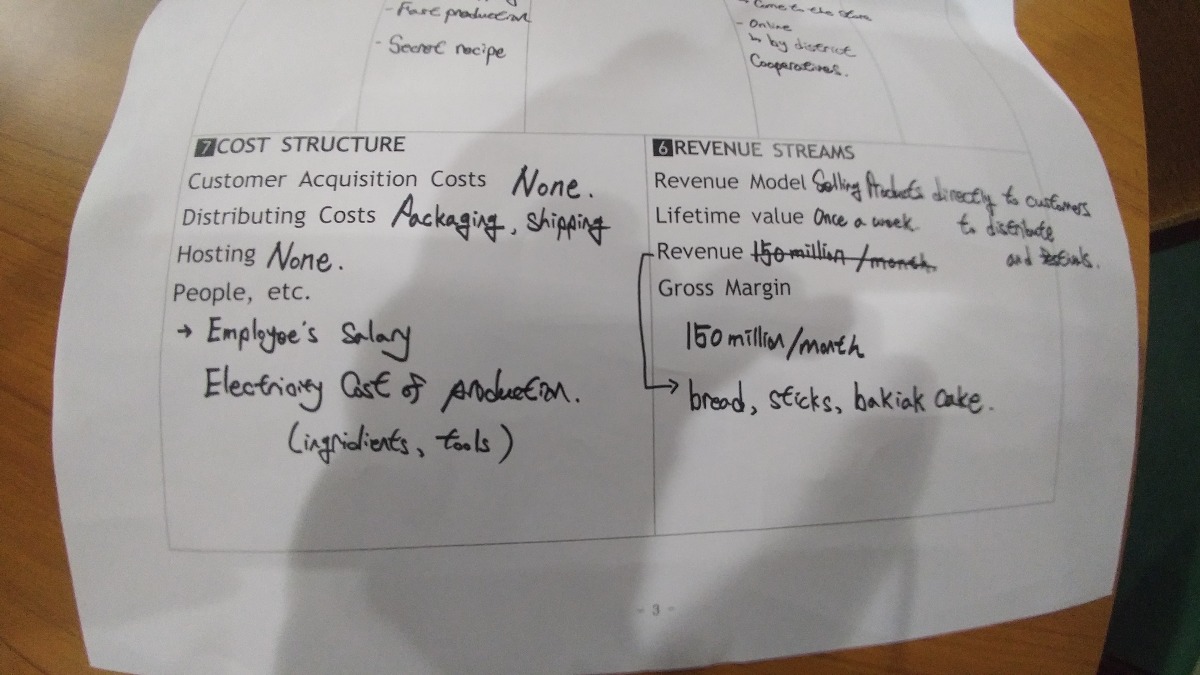 - Fast production
- Secret recipe
- Come to the store
- Online
↳ by district
Cooperatives.
7 COST STRUCTURE
Customer Acquisition Costs None.
Distributing Costs Packaging, shipping
Hosting None.
People, etc.
→ Employee's Salary
Electricity Cost of production.
(ingridients, tools)
6 REVENUE STREAMS
Revenue Model Selling Products directly to customers
Lifetime value Once a week. to distribute
Revenue 150 million /month and
Gross Margin
150 million/month
bread, sticks, bakiak cake.
- 3 -